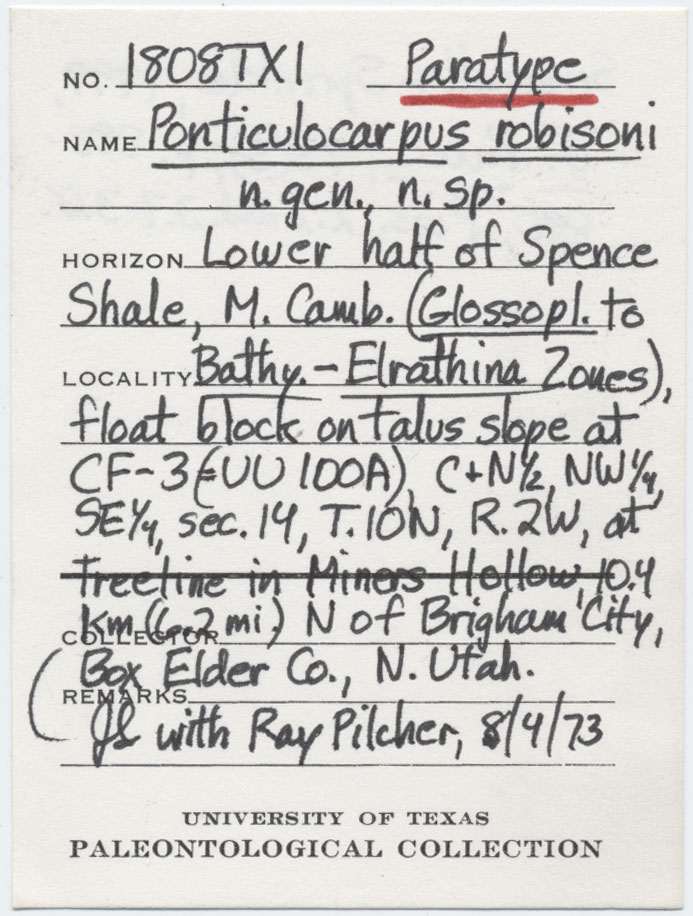 NO. 1808TX1 Paratype
NAME Ponticulocarpus robisoni
n. gen., n. sp.
HORIZON Lower half of Spence
Shale, M. Camb. (Glossopl. to
LOCALITY Bathy.-Elrathina Zones),
float block on talus slope at
CF-3 (=UU 100A), C+N½, NW¼,
SE¼, sec. 14, T.10N, R.2W, at
treeline in Miners Hollow, 10.4
km (6.2 mi) N of Brigham City,
COLLECTOR
Box Elder Co., N. Utah.
REMARKS
with Ray Pilcher, 8/4/73
UNIVERSITY OF TEXAS
PALEONTOLOGICAL COLLECTION